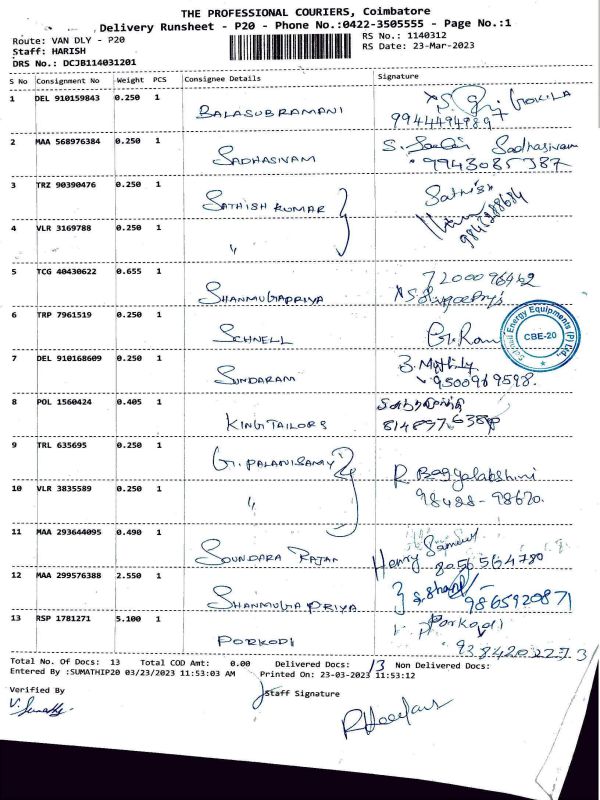 THE PROFESSIONAL COURIERS, Coimbatore
Delivery Runsheet - P20 - Phone No.:0422-3505555 - Page No.:1
Route: VAN DLY - P20
RS No.: 1140312
Staff: HARISH
RS Date: 23-Mar-2023
DRS No.: DCJB114031201
S No Consignment No Weight PCS Consignee Details Signature
1 DEL 910159843 0.250 1 BALASUBRAMANI GOKILA
9944494897
2 MAA 568976384 0.250 1 SADHASIVAM Sadhasivam
9943085387
3 TRZ 90390476 0.250 1 SATHISH KUMAR Sathish
4 VLR 3169788 0.250 1 "
5 TCG 40430622 0.655 1 SHANMUGAPRIYA 7200096462
6 TRP 7961519 0.250 1 SCHNELL G. Ram
Schnell Energy Equipments (P) Ltd.,
CBE-20
7 DEL 910168609 0.250 1 SUNDARAM
9500969598.
8 POL 1560424 0.405 1 KING TAILORS
9 TRL 635695 0.250 1 G. PALANISAMY R Bagyalakshmi
10 VLR 3835589 0.250 1 " 98428-98670.
11 MAA 293644095 0.490 1 SOUNDARA RAJAN Henry Samuel
8056564780
12 MAA 299576388 2.550 1 SHANMUGA PRIYA
9865920871
13 RSP 1781271 5.100 1 PORKODI Porkodi
9384202273
Total No. Of Docs: 13 Total COD Amt: 0.00 Delivered Docs: 13 Non Delivered Docs:
Entered By :SUMATHIP20 03/23/2023 11:53:03 AM Printed On: 23-03-2023 11:53:12
Verified By
Staff Signature
V. Sumathy.